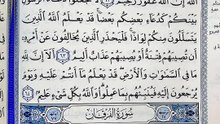 ٱللَّهَ إِنَّ ٱللَّهَ غَفُورٌ رَّحِيمٌ ٦٢ لَّا تَجْعَلُوا۟ دُعَآءَ ٱلرَّسُولِ
بَيْنَكُمْ كَدُعَآءِ بَعْضِكُم بَعْضًا قَدْ يَعْلَمُ ٱللَّهُ ٱلَّذِينَ
يَتَسَلَّلُونَ مِنكُمْ لِوَاذًا فَلْيَحْذَرِ ٱلَّذِينَ يُخَالِفُونَ عَنْ أَمْرِهِۦٓ
أَن تُصِيبَهُمْ فِتْنَةٌ أَوْ يُصِيبَهُمْ عَذَابٌ أَلِيمٌ ٦٣ أَلَآ إِنَّ لِلَّهِ مَا
فِي ٱلسَّمَٰوَٰتِ وَٱلْأَرْضِ قَدْ يَعْلَمُ مَآ أَنتُمْ عَلَيْهِ وَيَوْمَ
يُرْجَعُونَ إِلَيْهِ فَيُنَبِّئُهُم بِمَا عَمِلُوا۟ وَٱللَّهُ بِكُلِّ شَيْءٍ عَلِيمٌ ٦٤
سُورَةُ الفُرْقَانِ